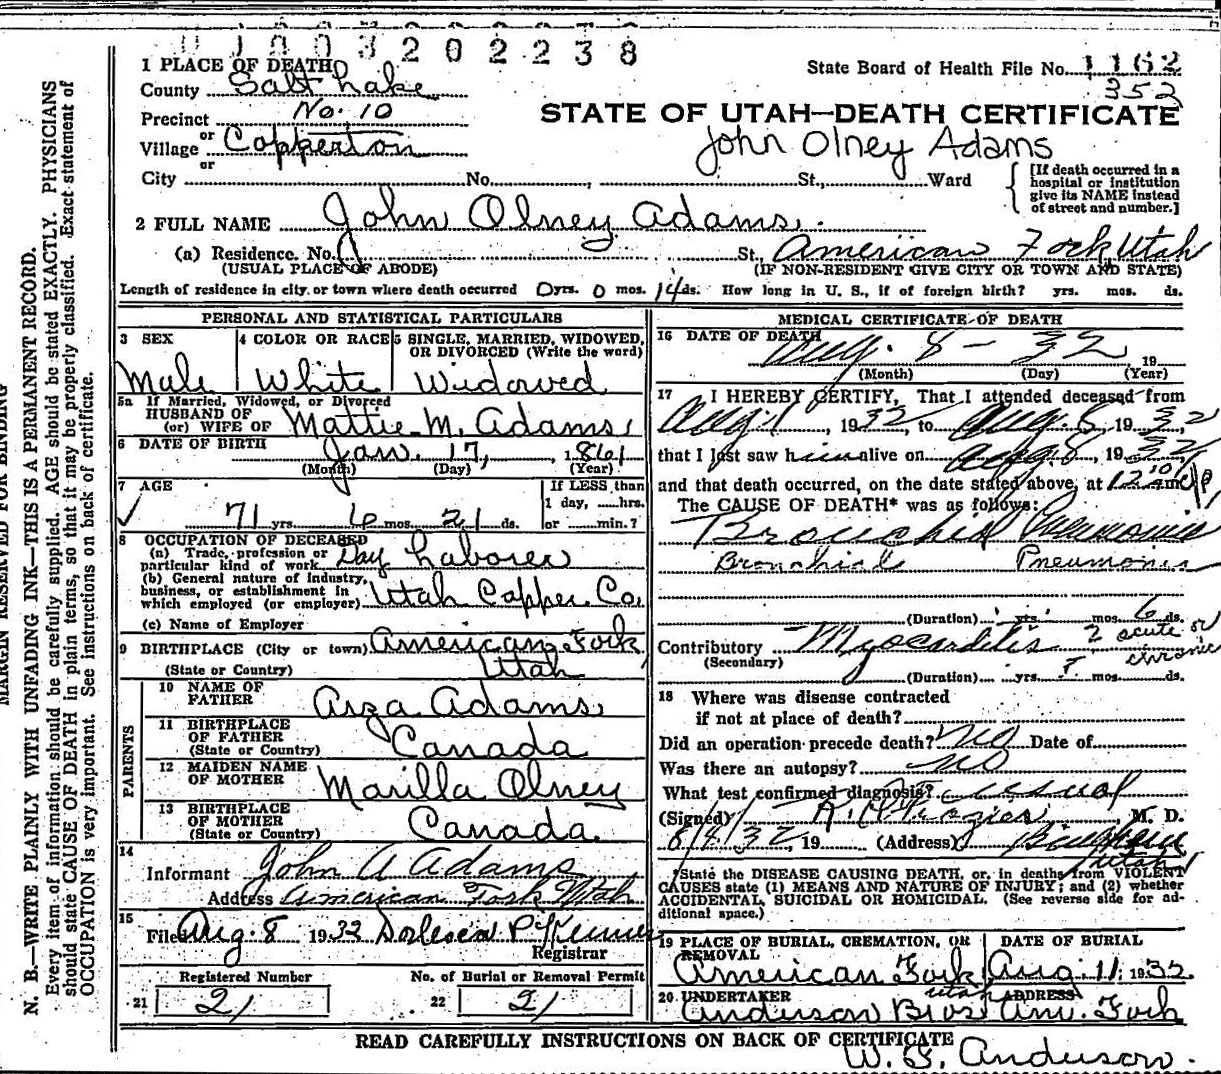 0 1 0 0 3 2 0 2 2 3 8
1 PLACE OF DEATH
State Board of Health File No. 1162
County Salt Lake
352
Precinct No. 10
STATE OF UTAH—DEATH CERTIFICATE
or
Village Copperton
John Olney Adams
or
City No. , St., Ward
[If death occurred in a
hospital or institution
give its NAME instead
of street and number.]
2 FULL NAME John Olney Adams.
(a) Residence. No. St., American Fork Utah
(USUAL PLACE OF ABODE) (IF NON-RESIDENT GIVE CITY OR TOWN AND STATE)
Length of residence in city or town where death occurred 0 yrs. 0 mos. 14 ds. How long in U. S., if of foreign birth? yrs. mos. ds.
PERSONAL AND STATISTICAL PARTICULARS
3 SEX 4 COLOR OR RACE 5 SINGLE, MARRIED, WIDOWED,
OR DIVORCED (Write the word)
Male White Widowed
5a If Married, Widowed, or Divorced
HUSBAND OF
(or) WIFE OF Mattie M. Adams
6 DATE OF BIRTH Jan. 17, 1861
(Month) (Day) (Year)
7 AGE If LESS than
1 day, hrs.
71 yrs 6 mos. 21 ds. or min.?
8 OCCUPATION OF DECEASED
(a) Trade, profession or
particular kind of work Day Laborer
(b) General nature of industry,
business, or establishment in
which employed (or employer) Utah Copper Co.
(c) Name of Employer
9 BIRTHPLACE (City or town) American Fork,
(State or Country) Utah
PARENTS
10 NAME OF
FATHER Arza Adams
11 BIRTHPLACE
OF FATHER
(State or Country) Canada
12 MAIDEN NAME
OF MOTHER Marilla Olney
13 BIRTHPLACE
OF MOTHER
(State or Country) Canada
14
Informant John A Adams
Address American Fork Utah
15
Filed Aug. 8 1932
Registrar
Registered Number No. of Burial or Removal Permit
21 21 22 21
MEDICAL CERTIFICATE OF DEATH
16 DATE OF DEATH
Aug. 8 - 32 19
(Month) (Day) (Year)
17 I HEREBY CERTIFY, That I attended deceased from
Aug. 1, 1932, to Aug. 8, 1932,
that I last saw him alive on Aug. 8, 1932
and that death occurred, on the date stated above, at 12 10 m
The CAUSE OF DEATH* was as follows:
Bronchial Pneumonia
Bronchial Pneumonia
(Duration) yrs. mos. 6 ds.
Contributory Myocarditis ? acute or
chronic
(Secondary)
(Duration) yrs. ? mos. ds.
18 Where was disease contracted
if not at place of death?
Did an operation precede death? No Date of
Was there an autopsy? no
What test confirmed diagnosis? usual
(Signed) , M. D.
8/8/32, 19 (Address) Bingham
Utah
*State the DISEASE CAUSING DEATH, or, in deaths from VIOLENT
CAUSES state (1) MEANS AND NATURE OF INJURY; and (2) whether
ACCIDENTAL, SUICIDAL OR HOMICIDAL. (See reverse side for ad-
ditional space.)
19 PLACE OF BURIAL, CREMATION, OR
REMOVAL DATE OF BURIAL
American Fork Aug. 11, 1932
Utah
20 UNDERTAKER ADDRESS
Anderson Bros Am. Fork
READ CAREFULLY INSTRUCTIONS ON BACK OF CERTIFICATE
W. G. Anderson.
MARGIN RESERVED FOR BINDING
N. B.—WRITE PLAINLY WITH UNFADING INK—THIS IS A PERMANENT RECORD.
Every item of information should be carefully supplied. AGE should be stated EXACTLY. PHYSICIANS
should state CAUSE OF DEATH in plain terms, so that it may be properly classified. Exact statement of
OCCUPATION is very important. See instructions on back of certificate.